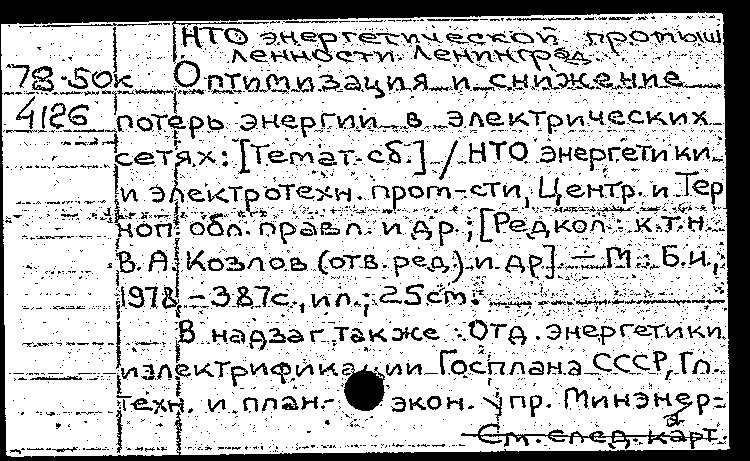 НТО энергетической промыш
ленности. Ленинград.
78-50к Оптимизация и снижение
4126 потерь энергии в электрических
сетях: [Темат. сб.] / НТО энергетики
и электротехн. пром-сти, Центр. и Тер
ноп. обл. правл. и др.; [Редкол.: к.т.н.
В. А. Козлов (отв. ред.) и др.] — М.: Б.и.,
1978 - 387с., ил.; 25см.
В надзаг. также: Отд. энергетики
и электрификации Госплана СССР, Гл.
техн. и план.- экон. упр. Минэнер-
См. след. карт.